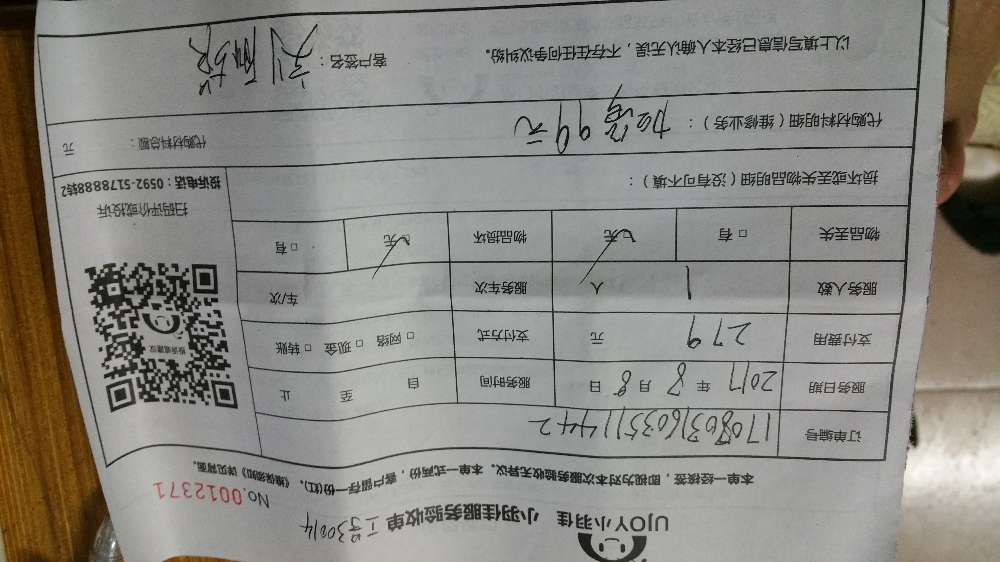 UJOY小羽佳 小羽佳服务验收单 工号30014
No.0012371
本单一经接签，即视为对本次服务验收无异议。本单一式两份，客户留存一份(红)。《维保须知》详见背面。
订单编号 17080316035111442
服务日期 2017年8月8日 服务时间 自 至 止
支付费用 279 元 支付方式 □ 网络 □ 现金 □ 转账
服务人数 1 人 服务车次 车/次
物品丢失 □ 有 □ 无 物品损坏 □ 无 □ 有
扫码评价或投诉
投诉电话：0592-5178888转2
损坏或丢失物品明细（没有可不填）：
代购材料明细（维修业务）： 99元 代购材料总额： 元
以上填写信息已经本人确认无误，不存在任何争议纠纷。 客户签名：